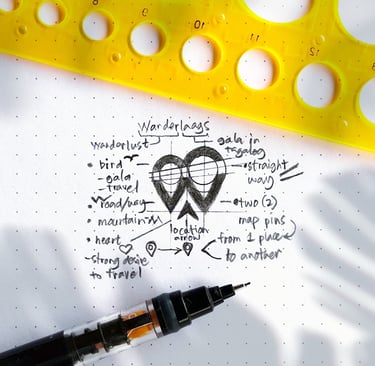 Wanderlaags
wanderlust
gala in
tagalog
bird
- gala
- travel
road/way
mountain
heart
- strong desire
to travel
straight
way
two (2)
map pins
from 1 place
to another
location
arrow